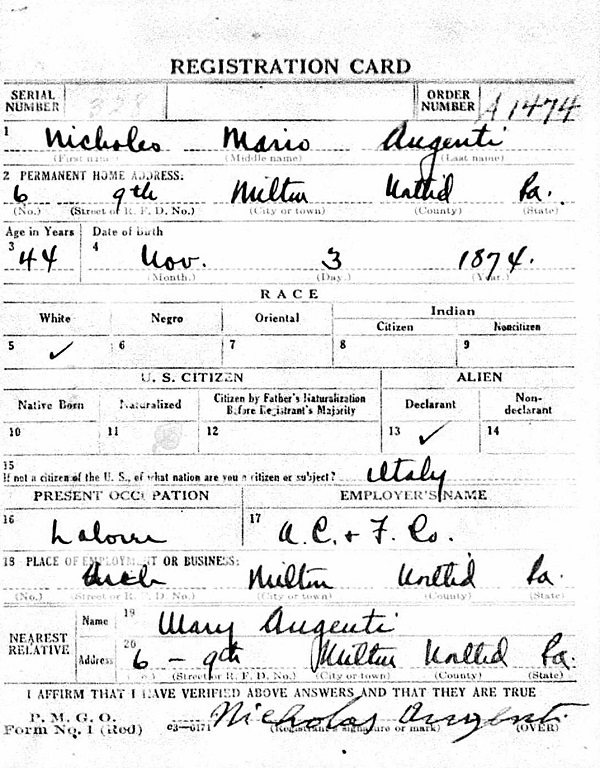 REGISTRATION CARD
SERIAL NUMBER 328 ORDER NUMBER A1474
1 Nicholes Mario Augenti
(First name) (Middle name) (Last name)
2 PERMANENT HOME ADDRESS:
6 9th Milton Pa.
(No.) (Street or R. F. D. No.) (City or town) (County) (State)
Age in Years Date of Birth
3 44 4 Nov. 3 1874.
(Month.) (Day.) (Year.)
RACE
White Negro Oriental Indian
Citizen Noncitizen
5 ✓ 6 7 8 9
U. S. CITIZEN ALIEN
Native Born Naturalized Citizen by Father's Naturalization Before Registrant's Majority Declarant Non-declarant
10 11 12 13 ✓ 14
15
If not a citizen of the U. S., of what nation are you a citizen or subject? Italy
PRESENT OCCUPATION EMPLOYER'S NAME
16 Laborer 17 A. C. & F. Co.
18 PLACE OF EMPLOYMENT OR BUSINESS:
Arch Milton Pa.
(No.) (Street or R. F. D. No.) (City or town) (County) (State)
NEAREST RELATIVE
Name 19 Mary Augenti
Address 20 6 - 9th Milton Pa.
(No.) (Street or R. F. D. No.) (City or town) (County) (State)
I AFFIRM THAT I HAVE VERIFIED ABOVE ANSWERS AND THAT THEY ARE TRUE
P. M. G. O.
Form No. 1 (Red) c3-6171 Nicholas Augenti
(Registrant's signature or mark) (OVER)